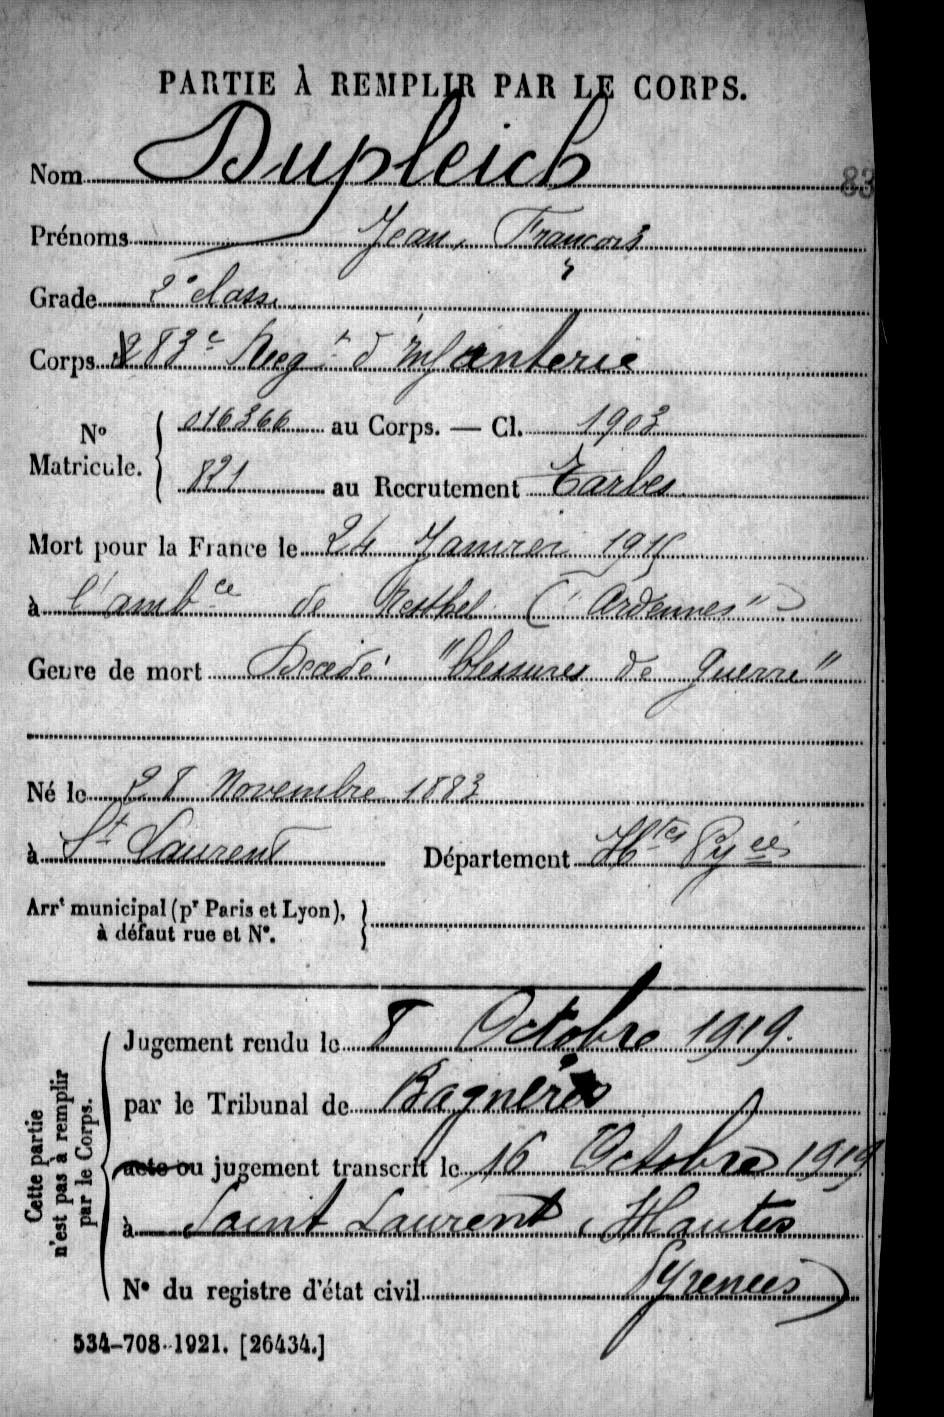 PARTIE À REMPLIR PAR LE CORPS.
Nom Dupleich
83
Prénoms Jean, François
Grade 2e classe
Corps 283e Regt d'Infanterie
No Matricule. { 016366 au Corps. — Cl. 1903
821 au Recrutement Tarbes
Mort pour la France le 24 Janvier 1915
à l'ambce de Resthel ("Ardennes")
Genre de mort Décédé "blessures de guerre"
Né le 28 Novembre 1883
à St Laurent Département Htes Pyées
Arrt municipal (pr Paris et Lyon), à défaut rue et No. }
Cette partie n'est pas à remplir par le Corps.
Jugement rendu le 8 Octobre 1919.
par le Tribunal de Bagnères
acte ou jugement transcrit le 16 Octobre 1919
à Saint Laurent (Hautes
No du registre d'état civil Pyrenees)
534-708-1921. [26434.]